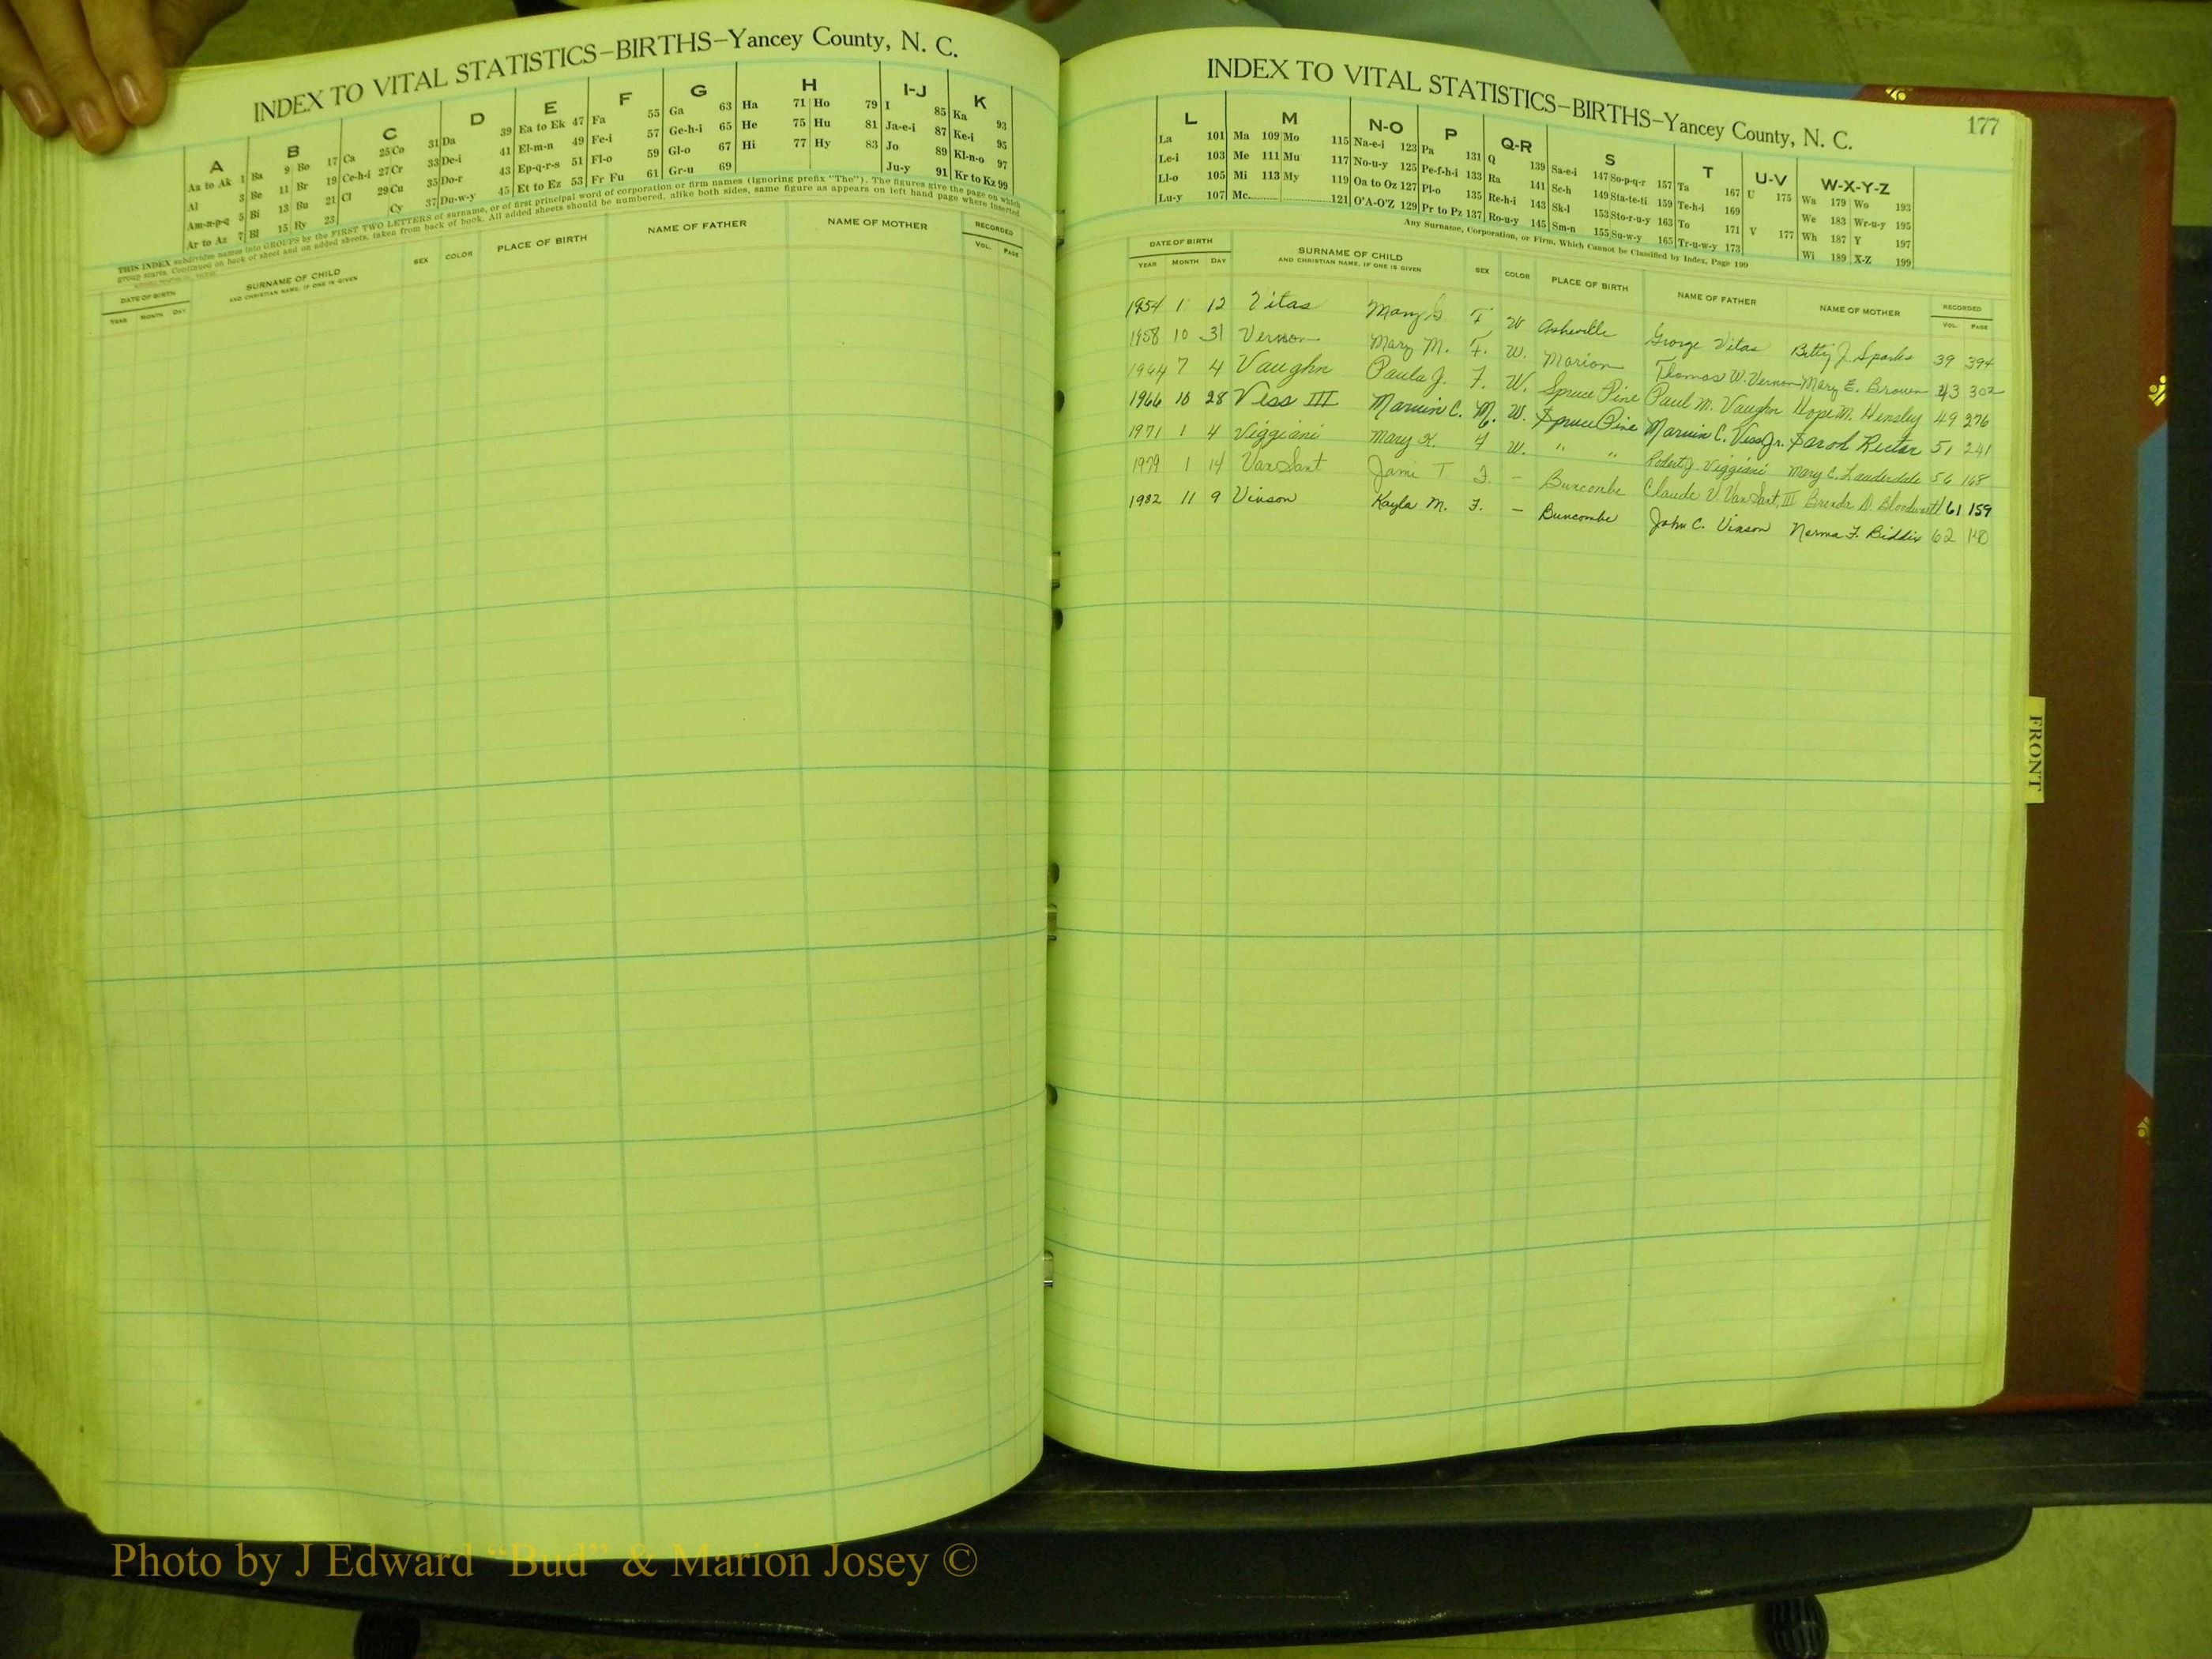 INDEX TO VITAL STATISTICS—BIRTHS—Yancey County, N. C.
A B C D E F G H I-J K
Aa to Ak 1 Ba 9 Bo 17 Ca 25 Co 31 Da 39 Ea to Ek 47 Fa 55 Ga 63 Ha 71 Ho 79 I 85 Ka 93
Al 3 Be 11 Br 19 Ce-h-i 27 Cr 33 De-i 41 El-m-n 49 Fe-i 57 Ge-h-i 65 He 75 Hu 81 Ja-e-i 87 Ke-i 95
Am-n-p-q 5 Bi 13 Bu 21 Cl 29 Cu 35 Do-r 43 Ep-q-r-s 51 Fl-o 59 Gl-o 67 Hi 77 Hy 83 Jo 89 Kl-n-o 97
Ar to Az 7 Bl 15 By 23 Cy 37 Du-w-y 45 Et to Ez 53 Fr Fu 61 Gr-u 69 Ju-y 91 Kr to Kz 99
THIS INDEX subdivides names into GROUPS by the FIRST TWO LETTERS of surname, or of first principal word of corporation or firm names (ignoring prefix "The"). The figures give the page on which
group starts. Continued on back of sheet and on added sheets, taken from back of book. All added sheets should be numbered, alike both sides, same figure as appears on left hand page where inserted
DATE OF BIRTH SURNAME OF CHILD SEX COLOR PLACE OF BIRTH NAME OF FATHER NAME OF MOTHER RECORDED
YEAR MONTH DAY AND CHRISTIAN NAME, IF ONE IS GIVEN VOL. PAGE
INDEX TO VITAL STATISTICS—BIRTHS—Yancey County, N. C. 177
L M N-O P Q-R S T U-V W-X-Y-Z
La 101 Ma 109 Mo 115 Na-e-i 123 Pa 131 Q 139 Sa-e-i 147 So-p-q-r 157 Ta 167 U 175 Wa 179 Wo 193
Le-i 103 Me 111 Mu 117 No-u-y 125 Pe-f-h-i 133 Ra 141 Sc-h 149 Sta-te-ti 159 Te-h-i 169 We 183 Wr-u-y 195
Ll-o 105 Mi 113 My 119 Oa to Oz 127 Pl-o 135 Re-h-i 143 Sk-l 153 Sto-r-u-y 163 To 171 V 177 Wh 187 Y 197
Lu-y 107 Mc 121 O'A-O'Z 129 Pr to Pz 137 Ro-u-y 145 Sm-n 155 Su-w-y 165 Tr-u-w-y 173 Wi 189 X-Z 199
Any Surname, Corporation, or Firm, Which Cannot be Classified by Index, Page 199
DATE OF BIRTH SURNAME OF CHILD SEX COLOR PLACE OF BIRTH NAME OF FATHER NAME OF MOTHER RECORDED
YEAR MONTH DAY AND CHRISTIAN NAME, IF ONE IS GIVEN VOL. PAGE
1954 1 12 Vitas Mary G. F W Asheville George Vitas Betty J. Sparks 39 394
1958 10 31 Vernon Mary M. F. W. Marion Thomas W. Vernon Mary E. Brown 43 302
1964 7 4 Vaughn Paula J. F. W. Spruce Pine Paul M. Vaughn Hope M. Hensley 49 276
1966 10 28 Vess III Marvin C. M. W. Spruce Pine Marvin C. Vess Jr. Sarah Rector 51 241
1971 1 4 Viggiani Mary K. F W. " " Robert J. Viggiani Mary C. Lauderdale 56 168
1979 1 14 VanSant Jami T F. – Buncombe Claude V. VanSant, III Brenda D. 61 159
1982 11 9 Vinson Kayla M. F. – Buncombe John C. Vinson Norma F. Biddix 62 140
FRONT
Photo by J Edward “Bud” & Marion Josey ©